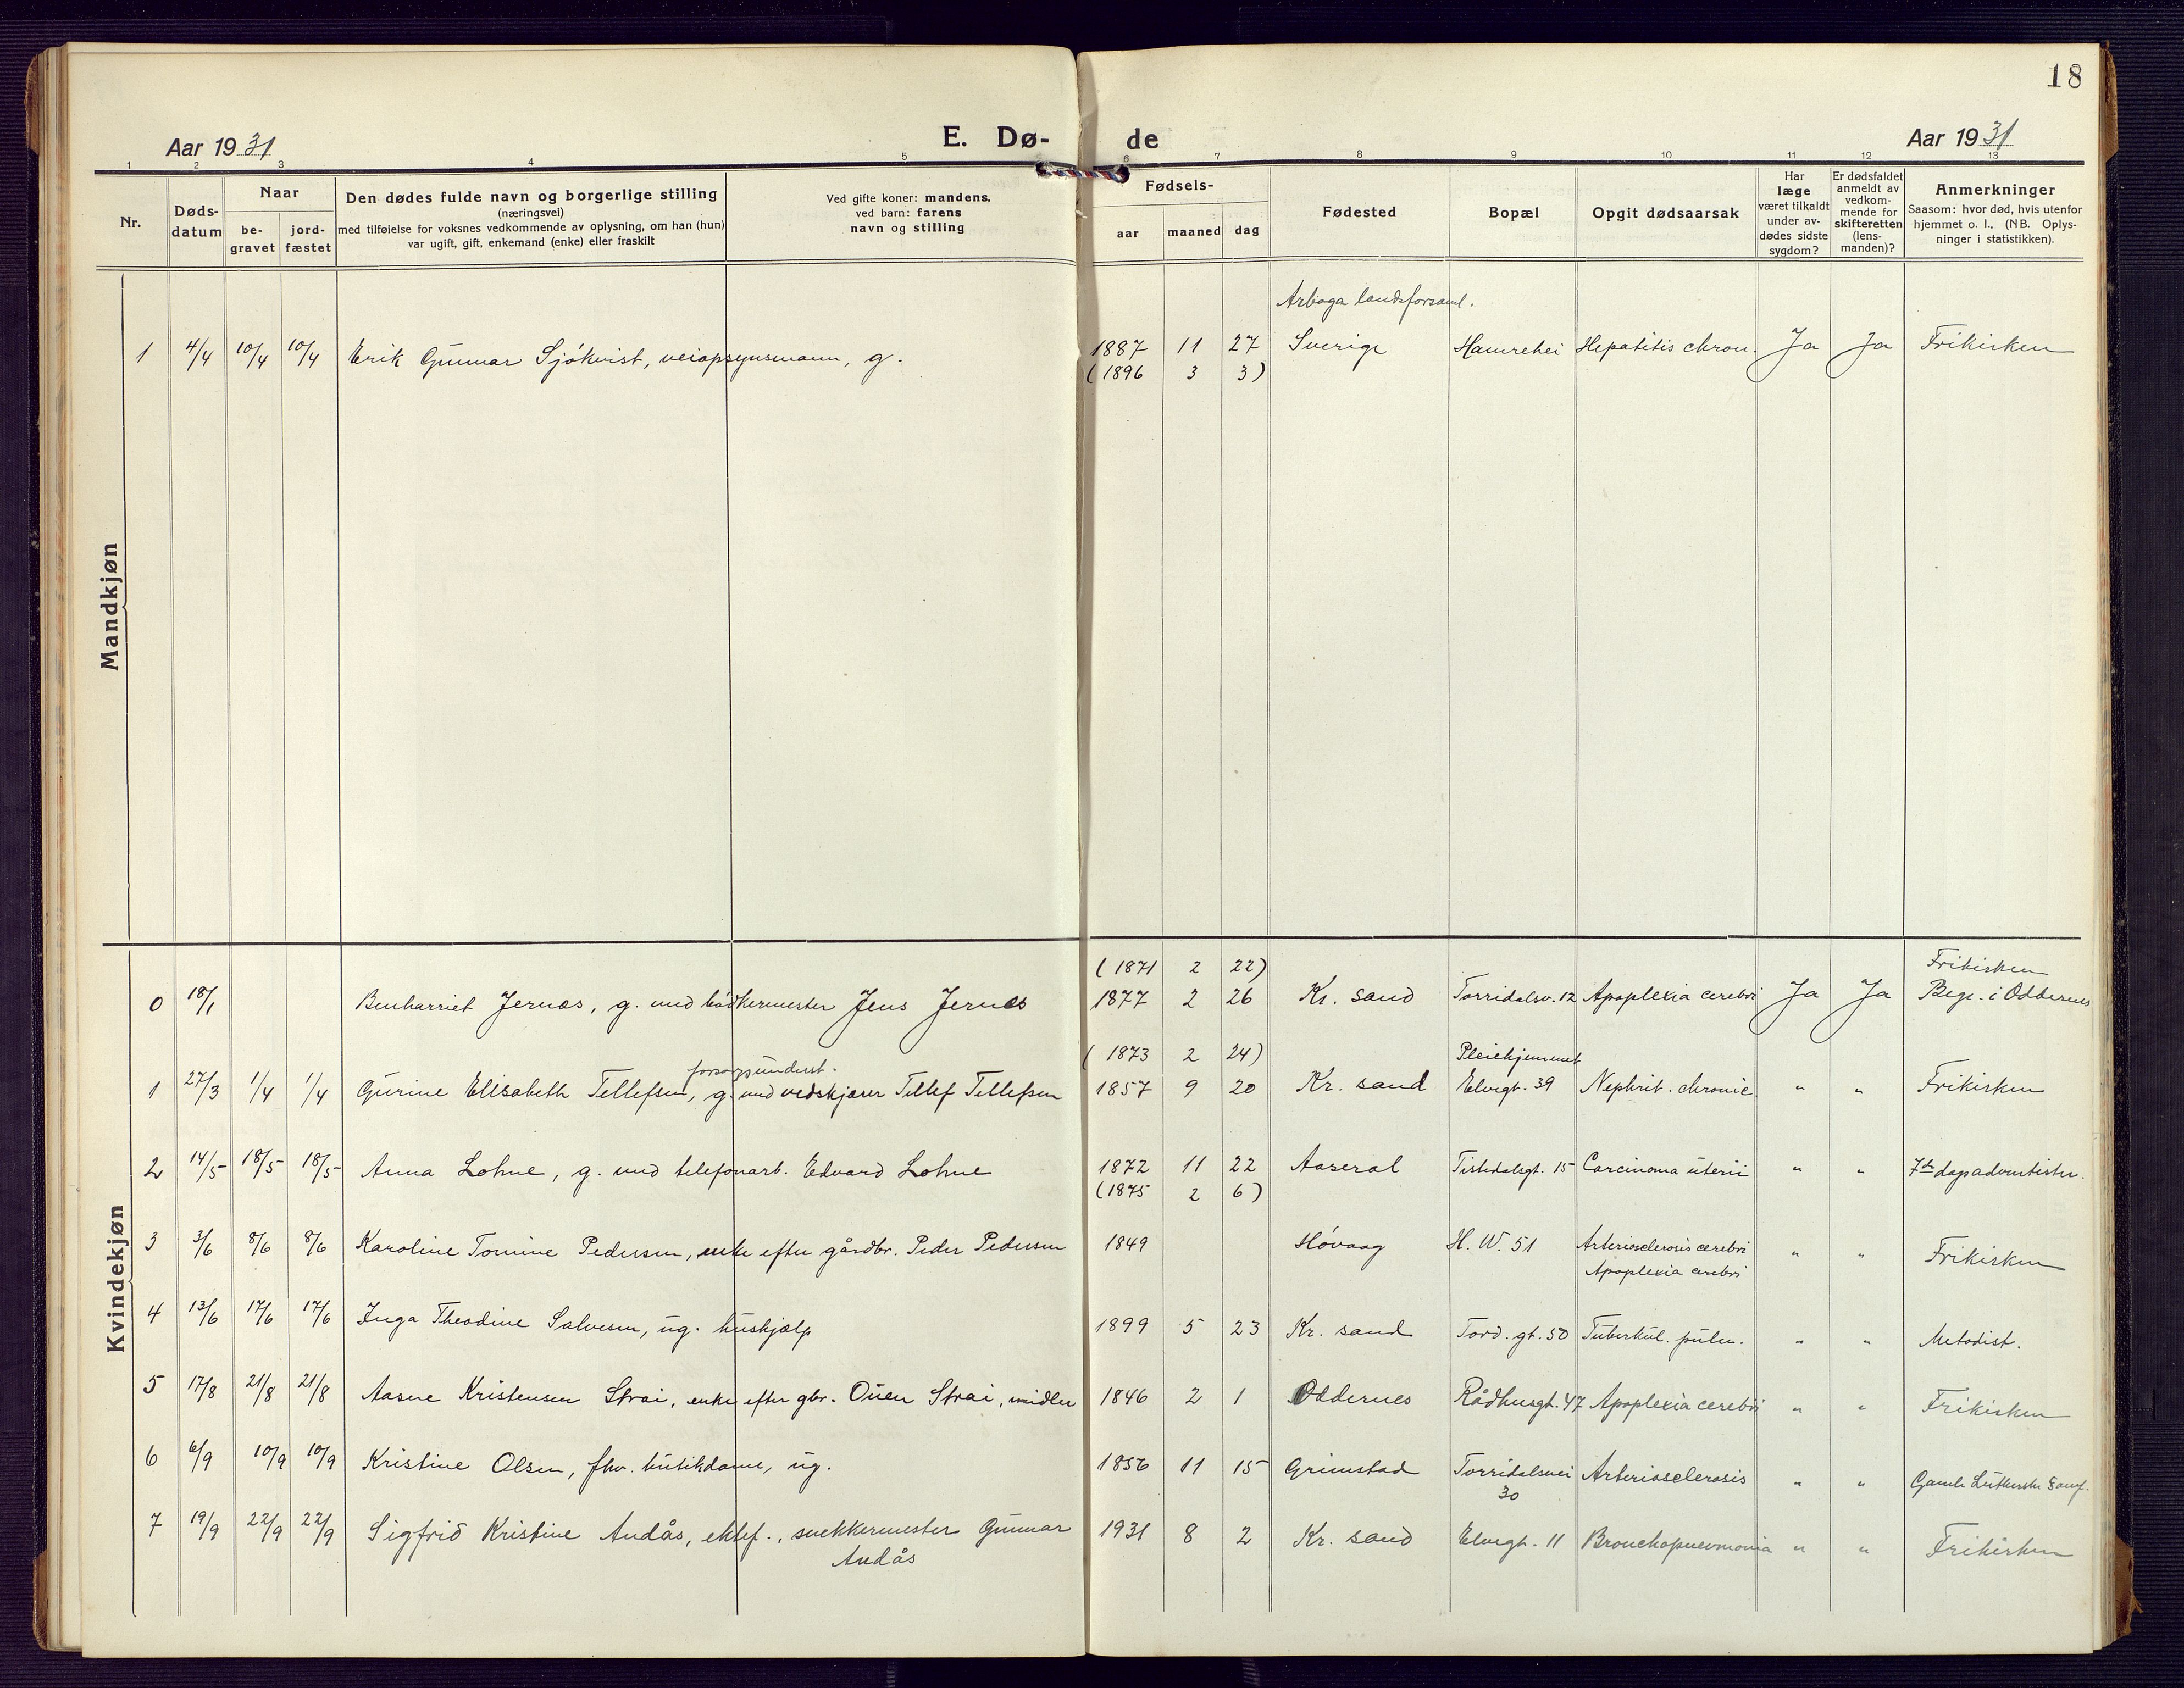 18
Aar 1931
E. Dø-
de
Aar 1931
1 2 3 4 5 6 7 8 9 10 11 12 13
Nr.
Døds-
datum
Naar
be-
gravet
jord-
fæstet
Den dødes fulde navn og borgerlige stilling
(næringsvei)
med tilføielse for voksnes vedkommende av oplysning, om han (hun)
var ugift, gift, enkemand (enke) eller fraskilt
Ved gifte koner: mandens,
ved barn: farens
navn og stilling
Fødsels-
aar maaned dag
Fødested
Bopæl
Opgit dødsaarsak
Har
læge
været tilkaldt
under av-
dødes sidste
sygdom?
Er dødsfaldet
anmeldt av
vedkom-
mende for
skifteretten
(lens-
manden)?
Anmerkninger
Saasom: hvor død, hvis utenfor
hjemmet o. l., (NB. Oplys-
ninger i statistikken).
Mandkjøn
Arboga landsforsaml.
1 4/4 10/4 10/4 Erik Gunnar Sjökvist, veiopsynsmann, g. 1887 11 27 Sverige Hamrehei Hepatitis chron. Ja Ja Frikirken
(1896 3 3)
Kvindekjøn
(1871 2 22) Frikirken
0 18/1 Benharriet Jernæs, g. med bödkermester Jens Jernæs 1877 2 26 Kr. sand Torridalsv. 12 Apoplexia cerebri Ja Ja Begr. i Oddernes
(1873 2 24) Pleiehjemmet
forsorgsunderst.
1 27/3 1/4 1/4 Gurine Elisabeth Tellefsen, g. med vedskjærer Tellef Tellefsen 1857 9 20 Kr. sand Elvegt. 39 Nephrit. chronic. " " Frikirken
2 14/5 18/5 18/5 Anna Lohne, g. med telefonarb. Edvard Lohne 1872 11 22 Aaseral Tistedalsgt. 15 Carcinoma uterii " " 7de dags adventister.
(1875 2 6)
3 3/6 8/6 8/6 Karoline Tomine Pedersen, enke efter gårdbr. Peder Pedersen 1849 Høvaag H. W. 51 Arteriosclerosis cerebri " " Frikirken
Apoplexia cerebri
4 13/6 17/6 17/6 Inga Theodine Salvesen, ug. hushjælp 1899 5 23 Kr. sand Tord. gt. 50 Tuberkul. pulm. " " Metodist.
5 17/8 21/8 21/8 Aasne Kristensen Strai, enke efter gbr. Ouen Strai, midler 1846 2 1 Oddernes Rådhusgt. 47 Apoplexia cerebri " " Frikirken
6 6/9 10/9 10/9 Kristine Olsen, fhv. butikdame, ug. 1856 11 15 Grimstad Torridalsvei Arteriosclerosis " " Gamle Lutherske Samf.
30
7 19/9 22/9 22/9 Sigfrid Kristine Andås, ektef., snekkermester Gunnar 1931 8 2 Kr. sand Elvegt. 11 Bronchopneumonia " " Frikirken
Andås